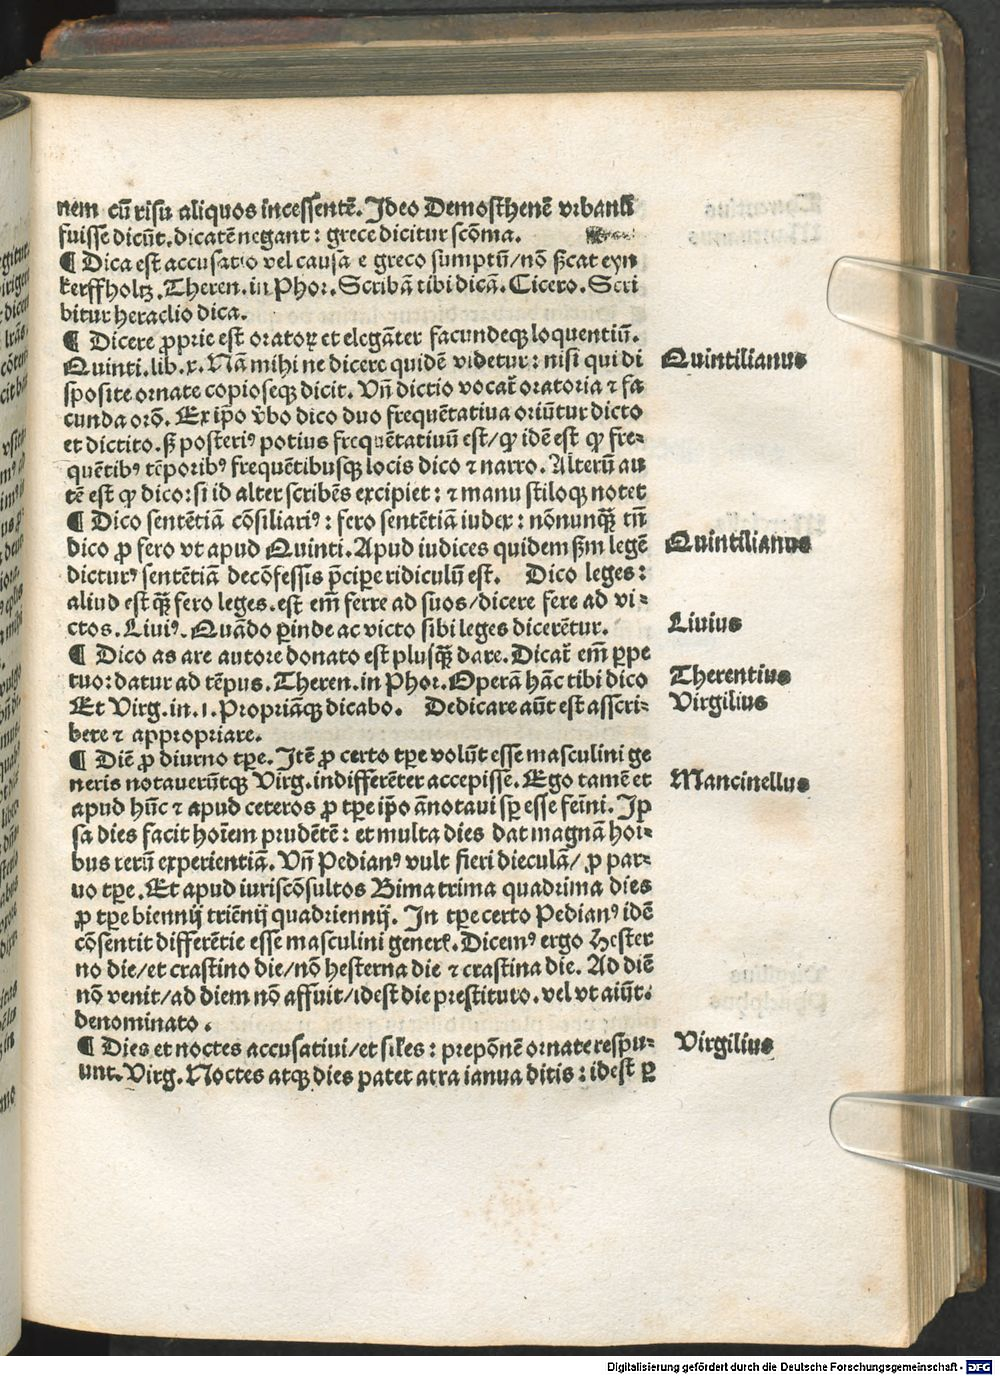 nem cū risu aliquos incessentē. Ideo Demosthenē vrbanū
fuisse dicūt. dicatē negant : grece dicitur scōma.
¶ Dica est accusatio vel causa e greco sumptū/nō sicat eyn
kerffholtz. Theren. in Phor. Scribā tibi dicā. Cicero. Scri
bitur heraclio dica.
¶ Dicere ꝓprie est oratoꝝ et elegāter facundeqꝫ loquentiū.
Quinti. lib. x. Nā mihi ne dicere quidē videtur : nisi qui di Quintilianus
sposite ornate copioseqꝫ dicit. Vn̄ dictio vocat̄ oratoria ⁊ fa
cunda orō. Ex ip̄o v̄bo dico duo frequētatiua oriūtur dicto
et dictito. sꝫ posteriꝰ potius frequētatiuū est/qꝫ idē est qꝫ fre⸗
quētibꝰ tēporibꝰ frequētibusqꝫ locis dico ⁊ narro. Alterū au
tē est qꝫ dico: si id alter scribēs excipiet : ⁊ manu stiloqꝫ notet
¶ Dico sentētiā cōsiliariꝰ : fero sentētiā iudex : nōnunqꝫ̄ tn̄
dico ꝓ fero vt apud Quinti. Apud iudices quidem sꝫm legē Quintilianus
dicturꝰ sentētiā de cōfessis p̄cipe ridiculū est. Dico leges :
aliud est qꝫ̄ fero leges. est em̄ ferre ad suos/dicere fere ad vi⸗
ctos. Liuiꝰ. Quādo ꝑinde ac victo sibi leges dicerētur. Liuius
¶ Dico as are autore donato est plusqꝫ̄ dare. Dicat̄ em̄ ꝑpe
tuo: datur ad tēpus. Theren. in Phor. Operā hāc tibi dico Therentius
Et Virg. in .1. Propriāqꝫ dicabo. Dedicare aūt est asscri⸗ Virgilius
bere ⁊ appropriare.
¶ Diē ꝓ diurno tꝑe. Itē ꝓ certo tꝑe volūt esse masculini ge
neris notauerūtqꝫ Virg. indifferēter accepisse. Ego tamē et Mancinellus
apud hūc ⁊ apud ceteros ꝓ tꝑe ip̄o ānotaui sꝑ esse fei̅ni. Ip̄
sa dies facit hoi̅em prudētē : et multa dies dat magnā hoi̅⸗
bus rerū experientiā. Vn̄ Pedianꝰ vult fieri dieculā/ ꝓ par⸗
uo tꝑe. Et apud iuriscōsultos Bima trima quadrima dies
ꝓ tꝑe biennij triēnij quadriennij. In tꝑe certo Pedianꝰ idē
cōsentit differētie esse masculini generꝭ. Dicemꝰ ergo Hester
no die/et crastino die/nō hesterna die ⁊ crastina die. Ad diē
nō venit/ad diem nō affuit/idest die prestituto. vel vt aiūt.
denominato.
¶ Dies et noctes accusatiui/et sil̄es : prepōnē ornate respu⸗ Virgilius
unt. Virg. Noctes atqꝫ dies patet atra ianua ditis : idest ꝑ
Digitalisierung gefördert durch die Deutsche Forschungsgemeinschaft - DFG